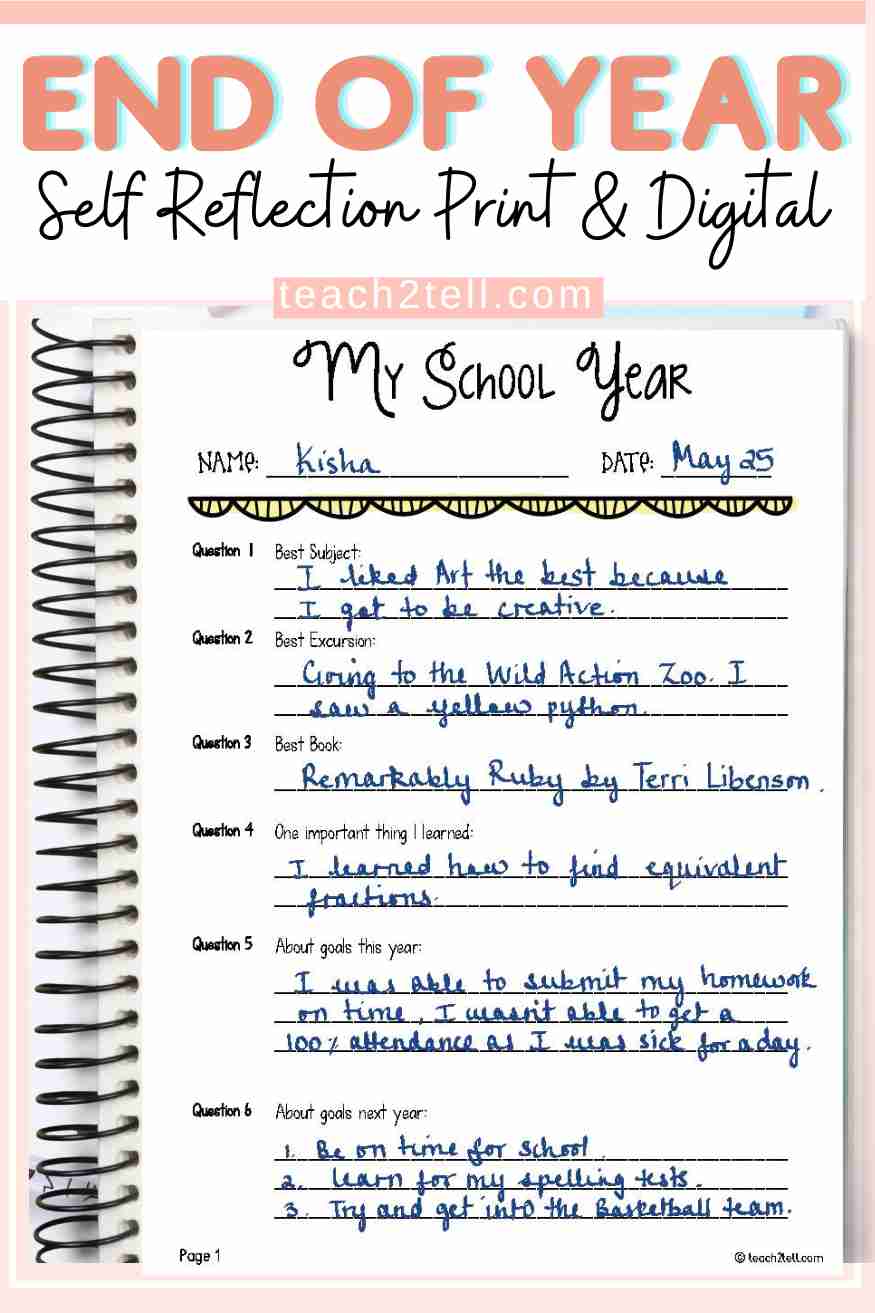 END OF YEAR
Self Reflection Print & Digital
teach2tell.com
My School Year
Name: Kisha Date: May 25
Question 1 Best Subject:
I liked Art the best because
I got to be creative.
Question 2 Best Excursion:
Going to the Wild Action Zoo. I
saw a yellow python.
Question 3 Best Book:
Remarkably Ruby by Terri Libenson.
Question 4 One important thing I learned:
I learned how to find equivalent
fractions.
Question 5 About goals this year:
I was able to submit my homework
on time, I wasn't able to get a
100% attendance as I was sick for a day.
Question 6 About goals next year:
1. Be on time for school.
2. learn for my spelling tests.
3. Try and get into the Basketball team.
Page 1 © teach2tell.com